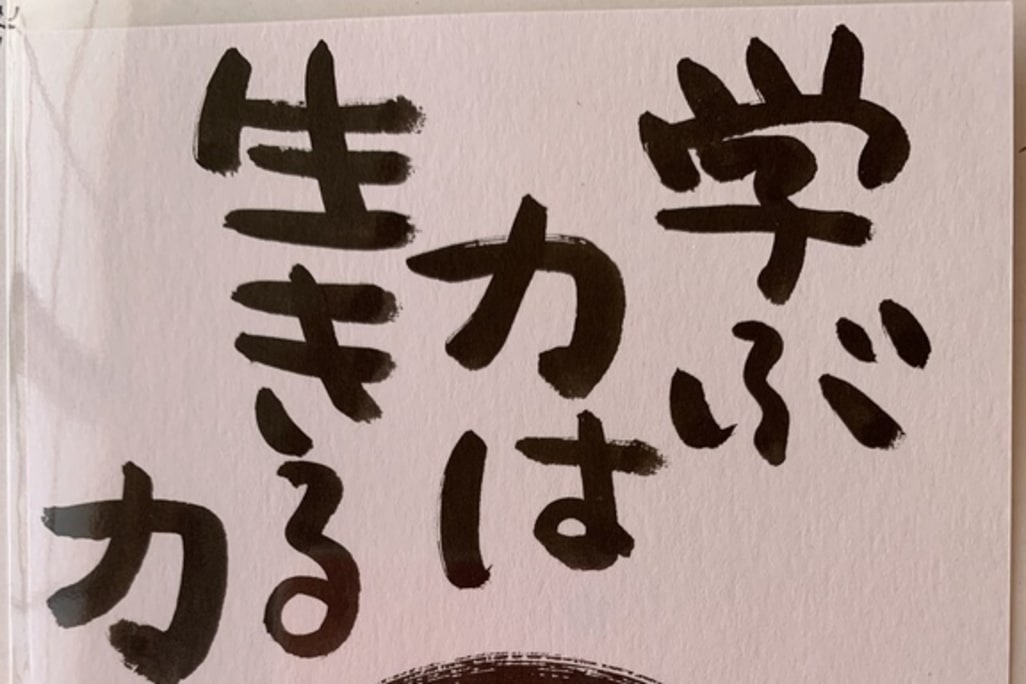 学ぶ
力は
生きる
力